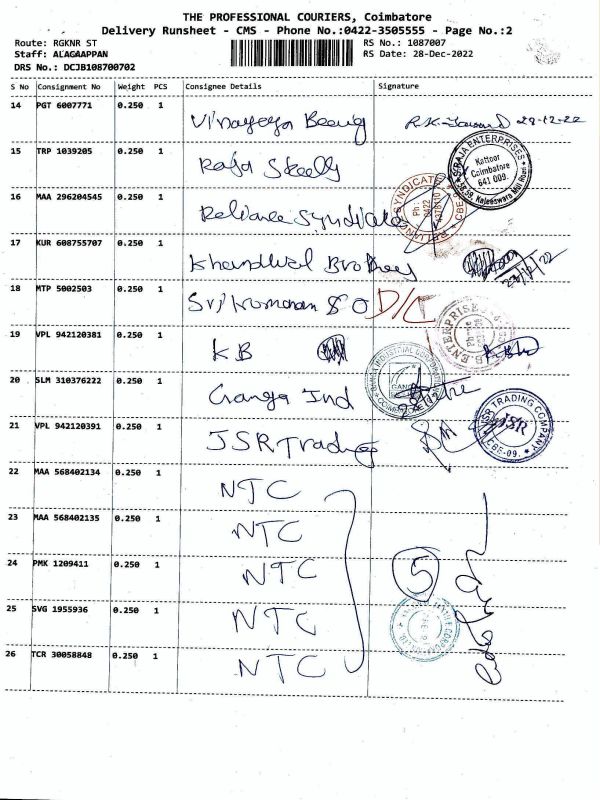 THE PROFESSIONAL COURIERS, Coimbatore
Delivery Runsheet - CMS - Phone No.:0422-3505555 - Page No.:2
Route: RGKNR ST RS No.: 1087007
Staff: ALAGAAPPAN RS Date: 28-Dec-2022
DRS No.: DCJB108700702
S No Consignment No Weight PCS Consignee Details Signature
14 PGT 6007771 0.250 1 28-12-22
15 TRP 1039205 0.250 1 Raja Steels
RAJA ENTERPRISES
Kattoor
Coimbatore
641 009.
16 MAA 296204545 0.250 1 Reliance Syndicate
17 KUR 608755707 0.250 1 Khandwal
18 MTP 5002503 0.250 1 D/C
19 VPL 942120381 0.250 1 KB
20 SLM 310376222 0.250 1 Ganga Ind
21 VPL 942120391 0.250 1 JSR Trading
JSR TRADING COMPANY
JSR
CBE-09.
22 MAA 568402134 0.250 1 NTC
23 MAA 568402135 0.250 1 NTC
24 PMK 1209411 0.250 1 NTC 5
25 SVG 1955936 0.250 1 NTC
26 TCR 30058848 0.250 1 NTC